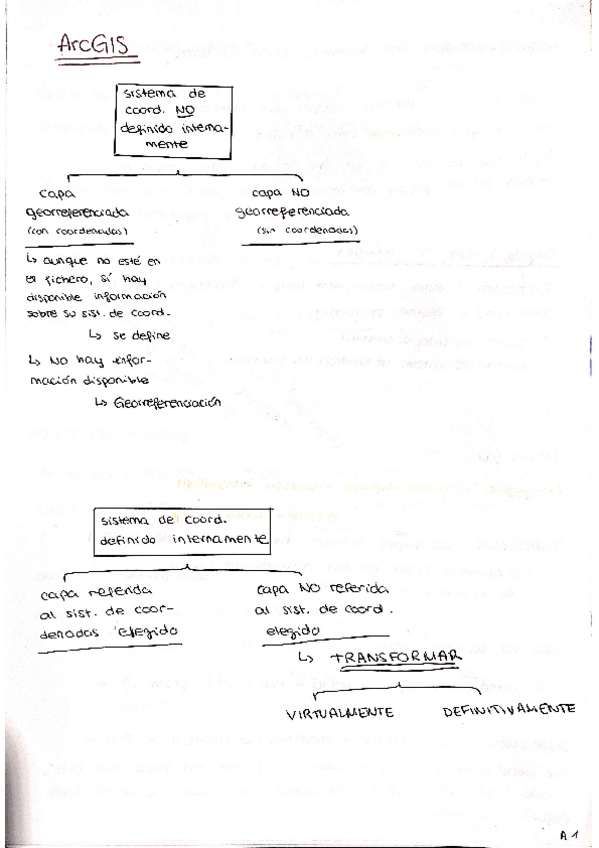 ArcGIS
sistema de
coord. NO
definido interna-
mente
capa
georreferenciada
(con coordenadas)
capa NO
georreferenciada
(sin coordenadas)
↳ aunque no esté en
el fichero, sí hay
disponible información
sobre su sist. de coord.
↳ se define
↳ NO hay infor-
mación disponible
↳ Georreferenciación
sistema de coord.
definido internamente
capa referida
al sist. de coor-
denadas elegido
capa NO referida
al sist. de coord.
elegido
↳ TRANSFORMAR
VIRTUALMENTE
DEFINITIVAMENTE
A1